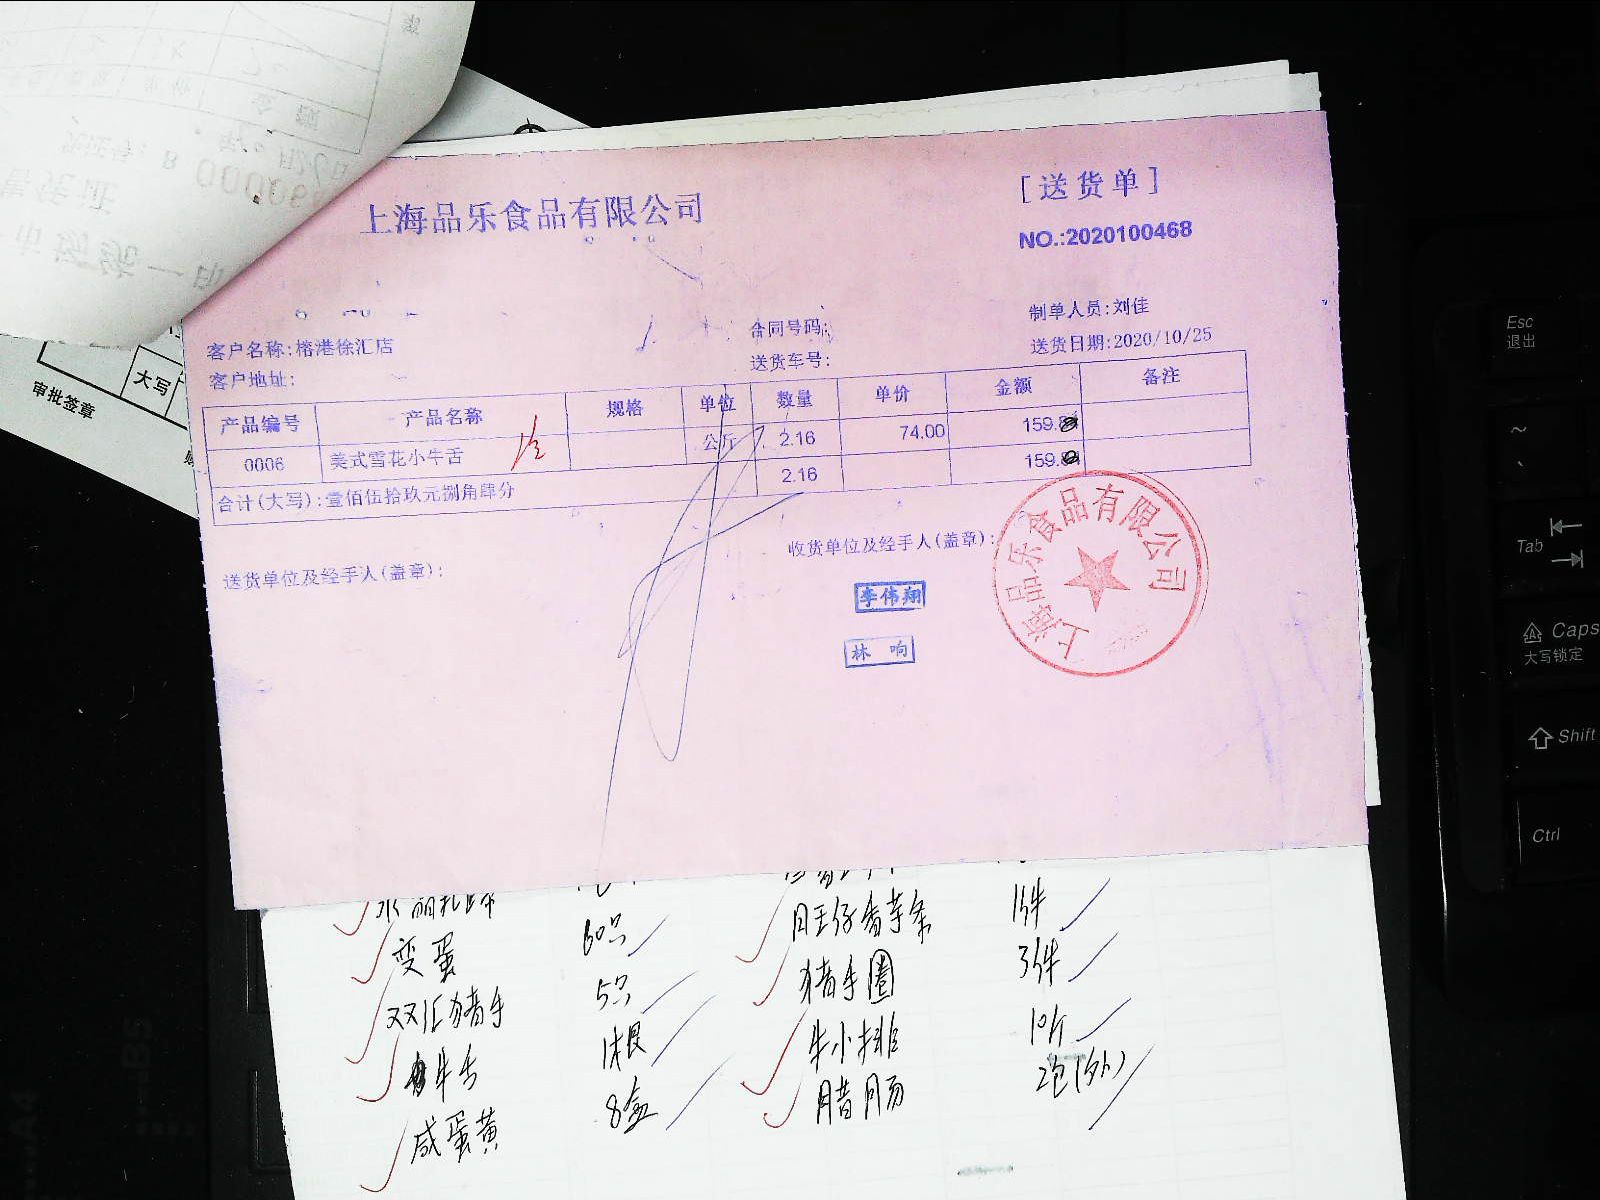 上海品乐食品有限公司
[送货单]
NO.:2020100468
制单人员:刘佳
客户名称:榕港徐汇店
合同号码:
送货日期:2020/10/25
客户地址:
送货车号:
产品编号 产品名称 规格 单位 数量 单价 金额 备注
0006 美式雪花小牛舌 公斤 2.16 74.00 159.
合计(大写):壹佰伍拾玖元捌角肆分 2.16 159.
送货单位及经手人(盖章):
收货单位及经手人(盖章):
李伟翔
林响
上海品乐食品有限公司
大写
审批签章
变蛋 60只
双汇猪手 5只
牛舌 1根
咸蛋黄 8盒
香芋条 1件
猪手圈 3件
牛小排 10斤
腊肠 2包
Esc
退出
Tab
Caps
大写锁定
Shift
Ctrl